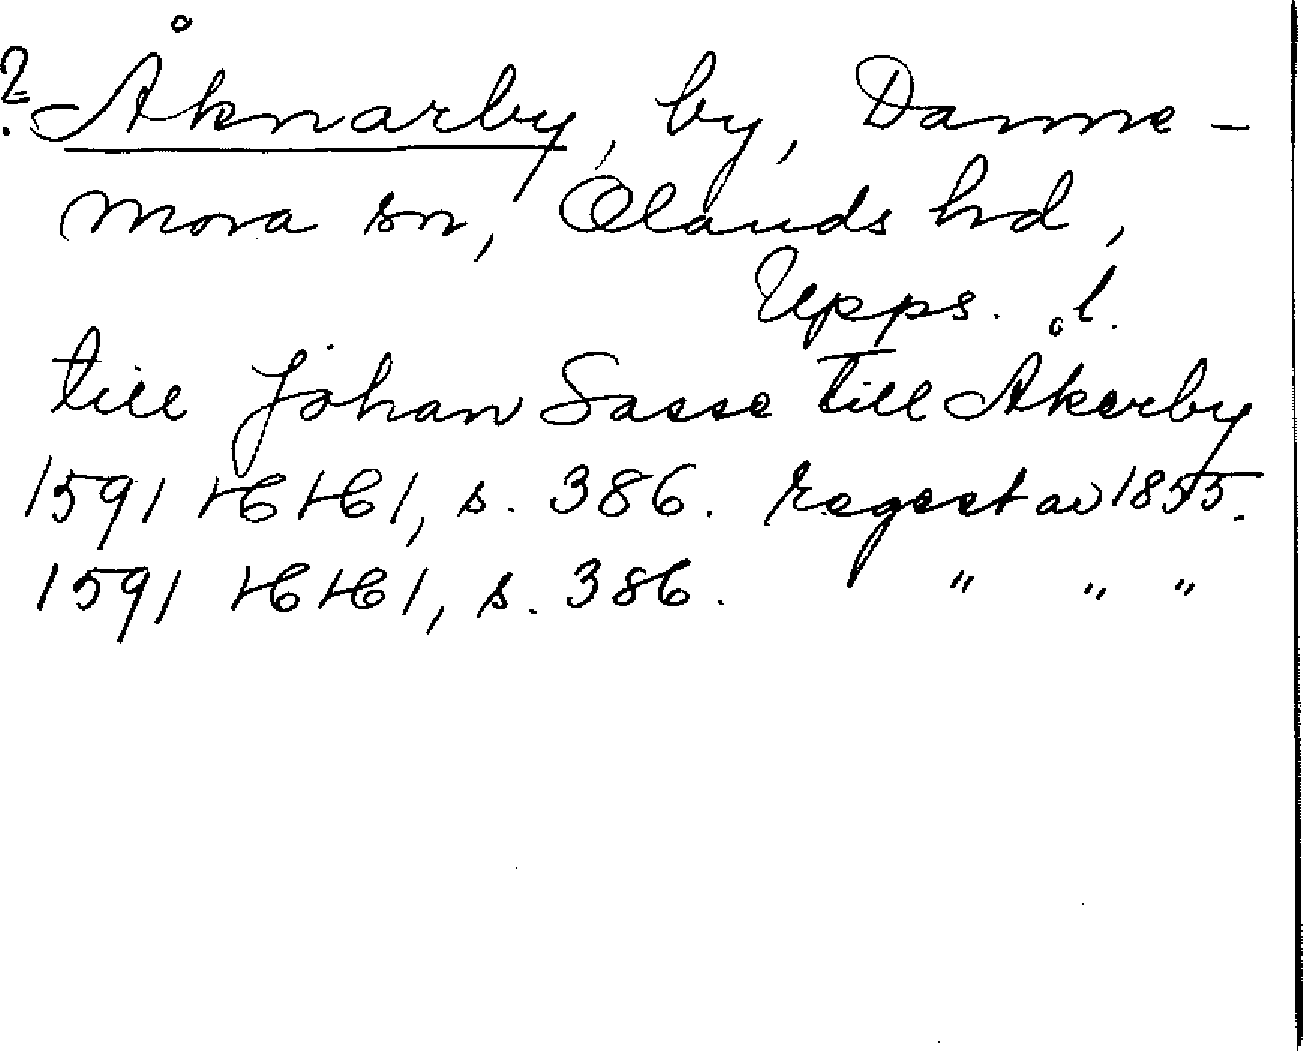 ? Åknarby, by, Danne-
mora sn, Olands hd,
Upps. l.
till Johan Sasse till Åkerby
1591 HH1, s. 386. Regest av 1855.
1591 HH1, s. 386. " " "